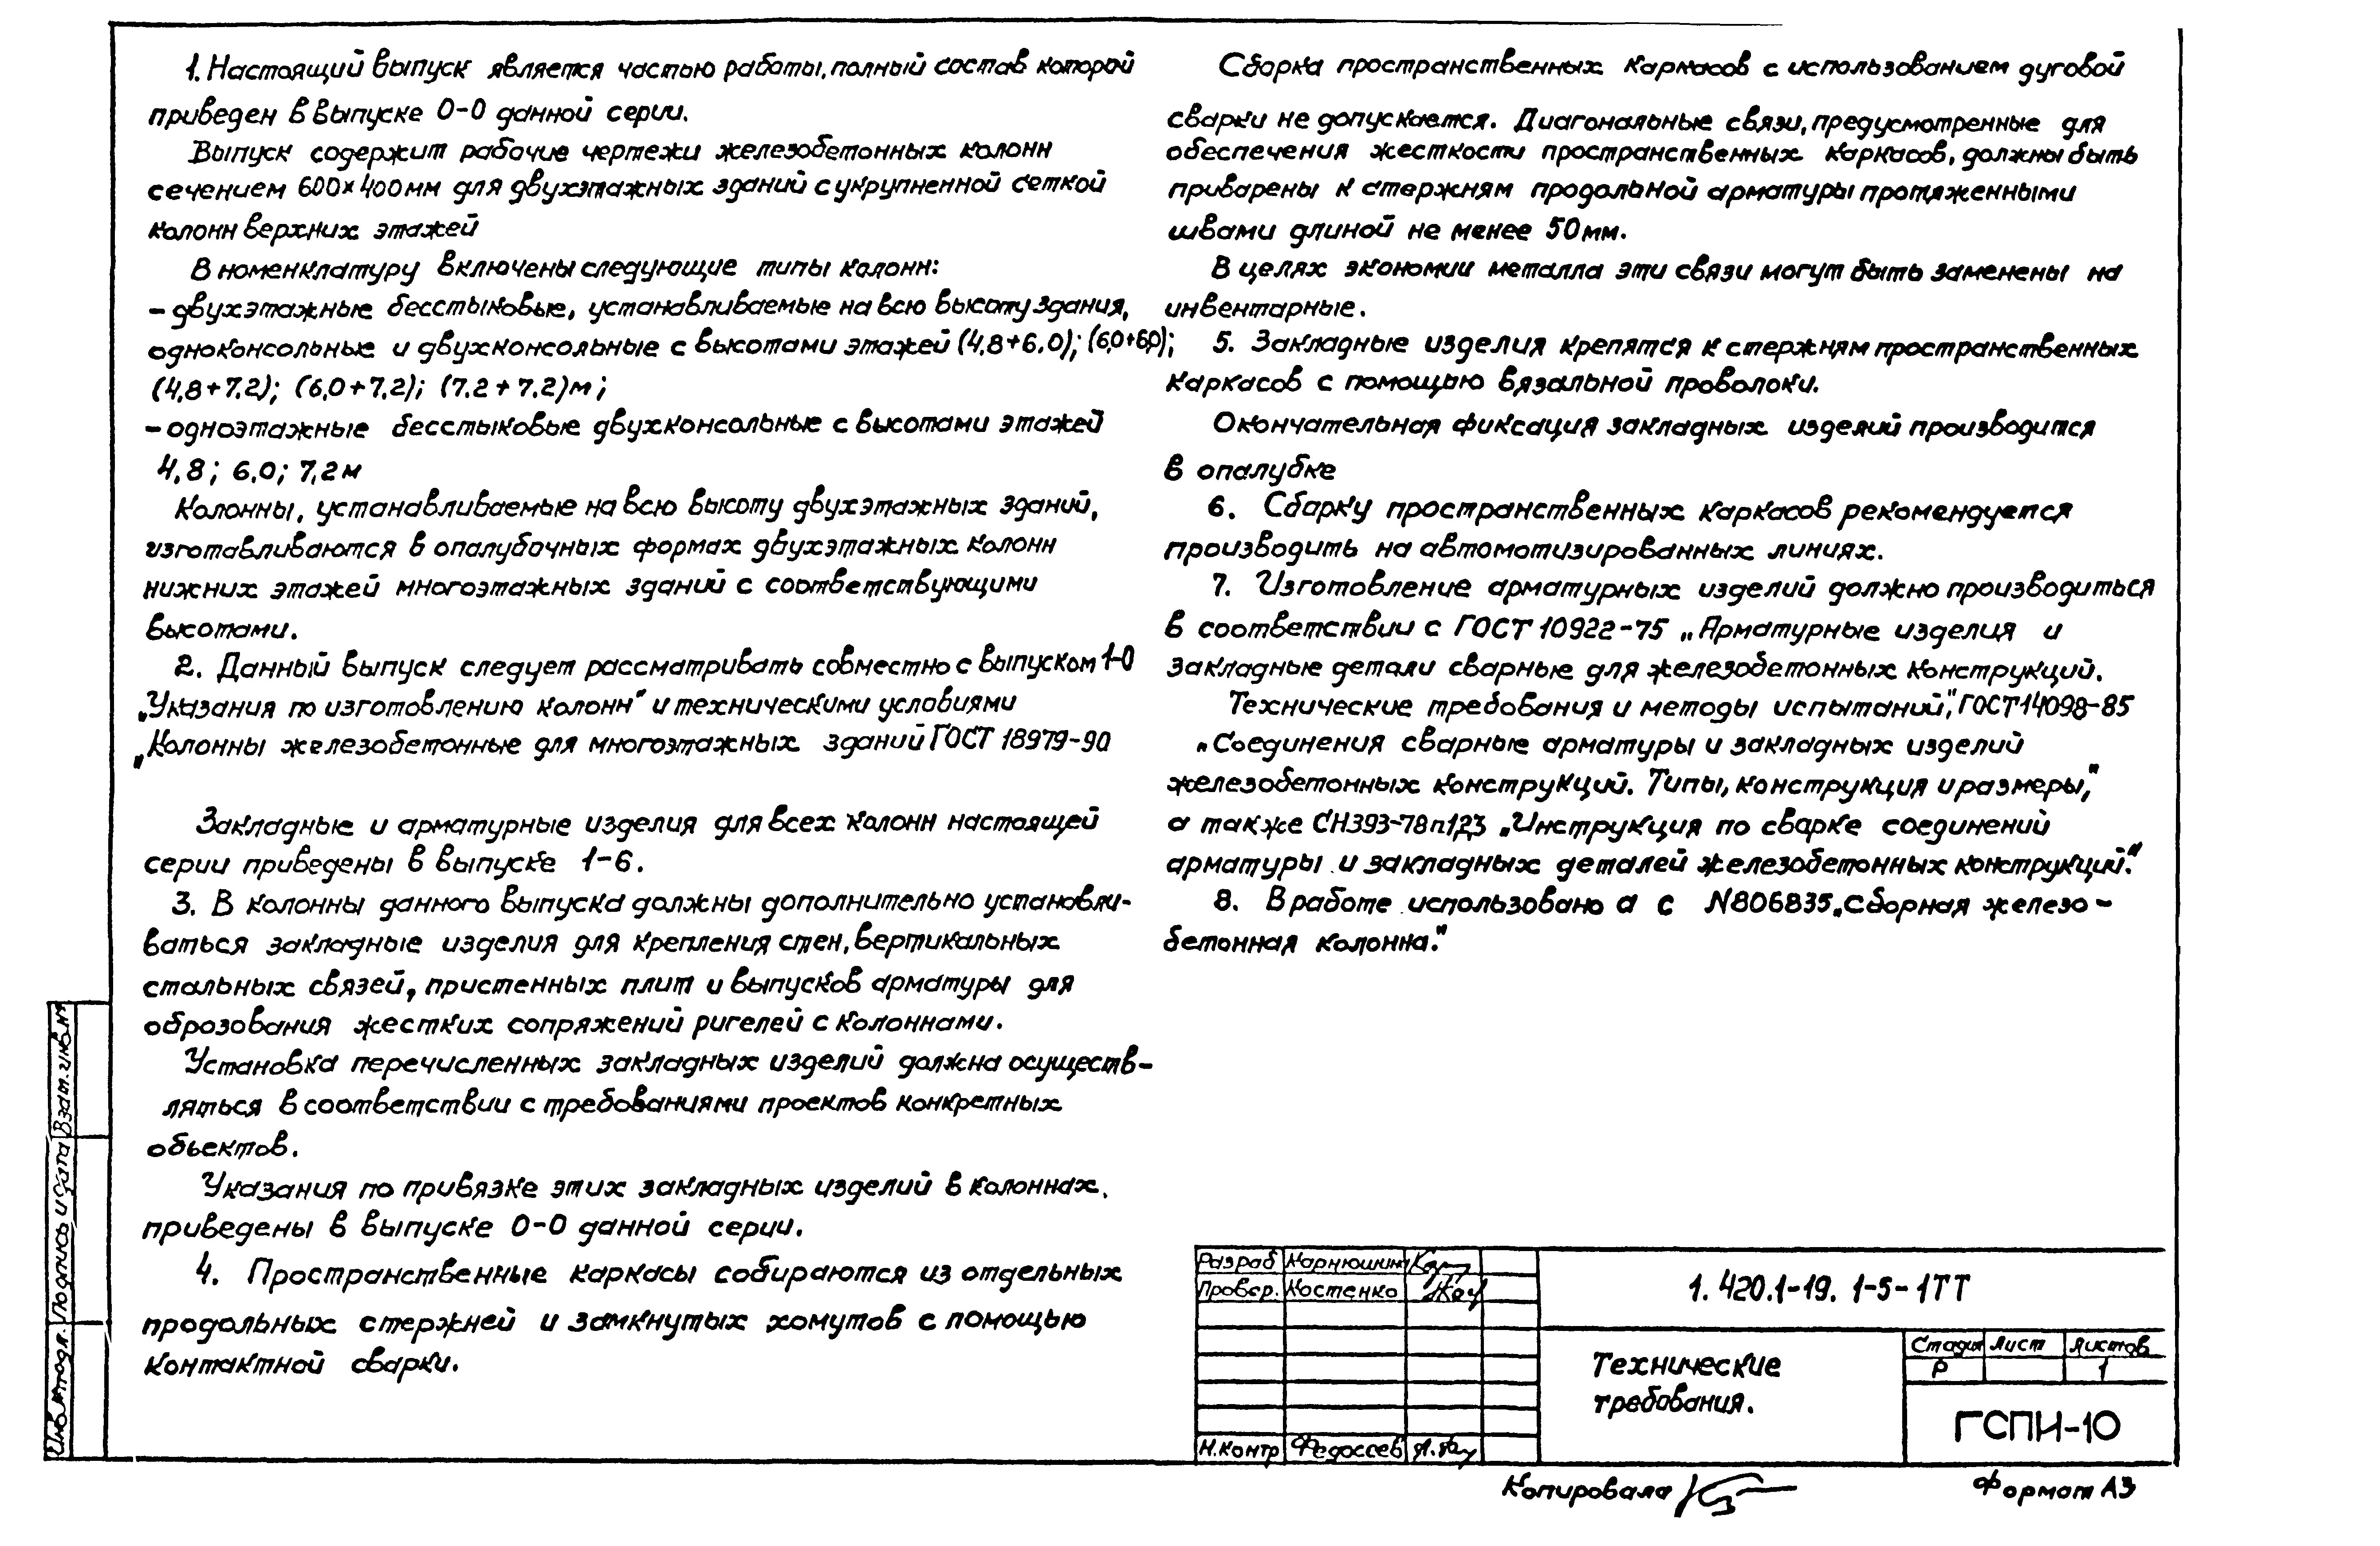 1. Настоящий выпуск является частью работы, полный состав которой
приведен в выпуске 0-0 данной серии.
Выпуск содержит рабочие чертежи железобетонных колонн
сечением 600×400мм для двухэтажных зданий с укрупненной сеткой
колонн верхних этажей
В номенклатуру включены следующие типы колонн:
- двухэтажные бесстыковые, устанавливаемые на всю высоту здания,
одноконсольные и двухконсольные с высотами этажей (4,8+6.0); (6,0+6,0);
(4,8+7.2); (6,0+7,2); (7.2+7.2)м;
- одноэтажные бесстыковые двухконсольные с высотами этажей
4,8; 6.0; 7,2м
Колонны, устанавливаемые на всю высоту двухэтажных зданий,
изготавливаются в опалубочных формах двухэтажных колонн
нижних этажей многоэтажных зданий с соответствующими
высотами.
2. Данный выпуск следует рассматривать совместно с выпуском 1-0
„Указания по изготовлению колонн" и техническими условиями
„Колонны железобетонные для многоэтажных зданий ГОСТ 18979-90
Закладные и арматурные изделия для всех колонн настоящей
серии приведены в выпуске 1-6.
3. В колонны данного выпуска должны дополнительно установли-
ваться закладные изделия для крепления стен, вертикальных
стальных связей, пристенных плит и выпусков арматуры для
оброзования жестких сопряжений ригелей с колоннами.
Установка перечисленных закладных изделий должна осуществ-
ляться в соответствии с требованиями проектов конкретных
обьектов.
Указания по привязке этих закладных изделий в колоннах.
приведены в выпуске 0-0 данной серии.
4. Пространственные каркасы собираются из отдельных
продольных стержней и замкнутых хомутов с помощью
контактной сварки.
Сборка пространственных каркасов с использованием дуговой
сварки не допускается. Диагональные связи, предусмотренные для
обеспечения жесткости пространственных каркасов, должны быть
приварены к стержням продольной арматуры протяженными
швами длиной не менее 50мм.
В целях экономии металла эти связи могут быть заменены на
инвентарные.
5. Закладные изделия крепятся к стержням пространственных
каркасов с помощью вязальной проволоки.
Окончательная фиксация закладных изделий производится
в опалубке
6. Сборку пространственных каркасов рекомендуется
производить на автомотизированных линиях.
7. Изготовление арматурных изделий должно производиться
в соответствии с ГОСТ 10922-75 „Арматурные изделия и
закладные детали сварные для железобетонных конструкций.
Технические требования и методы испытаний", ГОСТ 14098-85
„Соединения сварные арматуры и закладных изделий
железобетонных конструкций. Типы, конструкция и размеры",
а также СН393-78п1,2,3 „Инструкция по сварке соединений
арматуры и закладных деталей железобетонных конструкций."
8. В работе использовано а с N806835„Сборная железо-
бетонная колонна."
Взам.инв.№
Подпись и дата
Инв.№ подл.
Разраб Карнюшин
Провер. Костенко
Н.контр Федоссев
1.420.1-19. 1-5-1ТТ
Технические
требования.
Стадия Лист Листов
Р 1
ГСПИ-10
Копировала
Формат А3